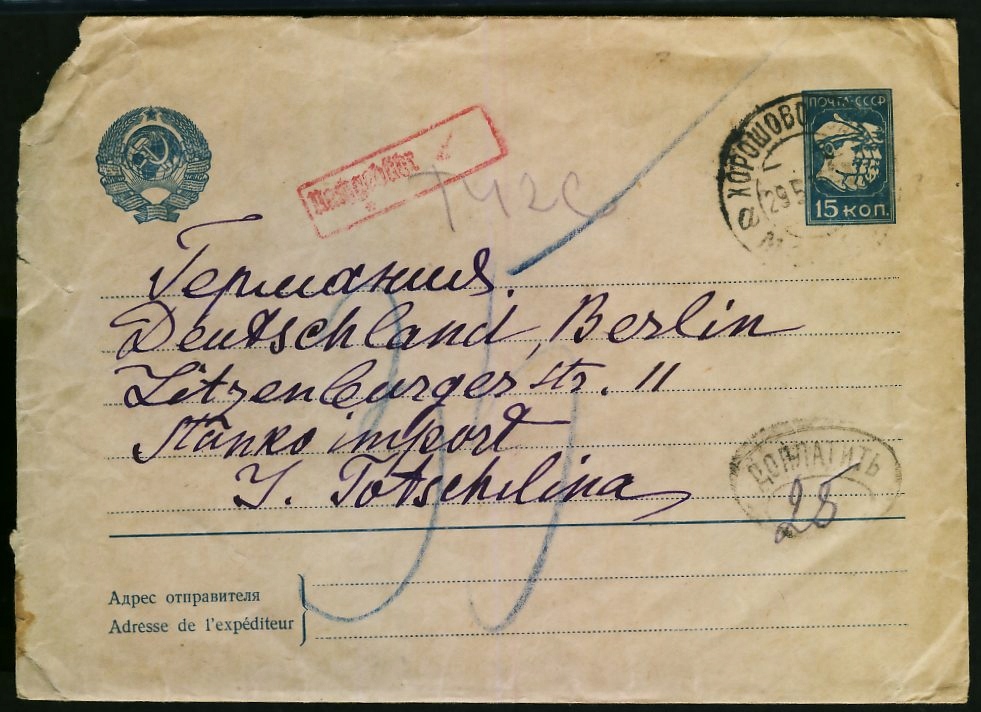 ПОЧТА СССР
15 КОП.
ХОРОШОВО
29 5
Nachgebühr
Германия.
Deutschland, Berlin
Litzenburger str. 11
Stanko import
J. Totschilina
ДОПЛАТИТЬ
25
Адрес отправителя
Adresse de l'expéditeur